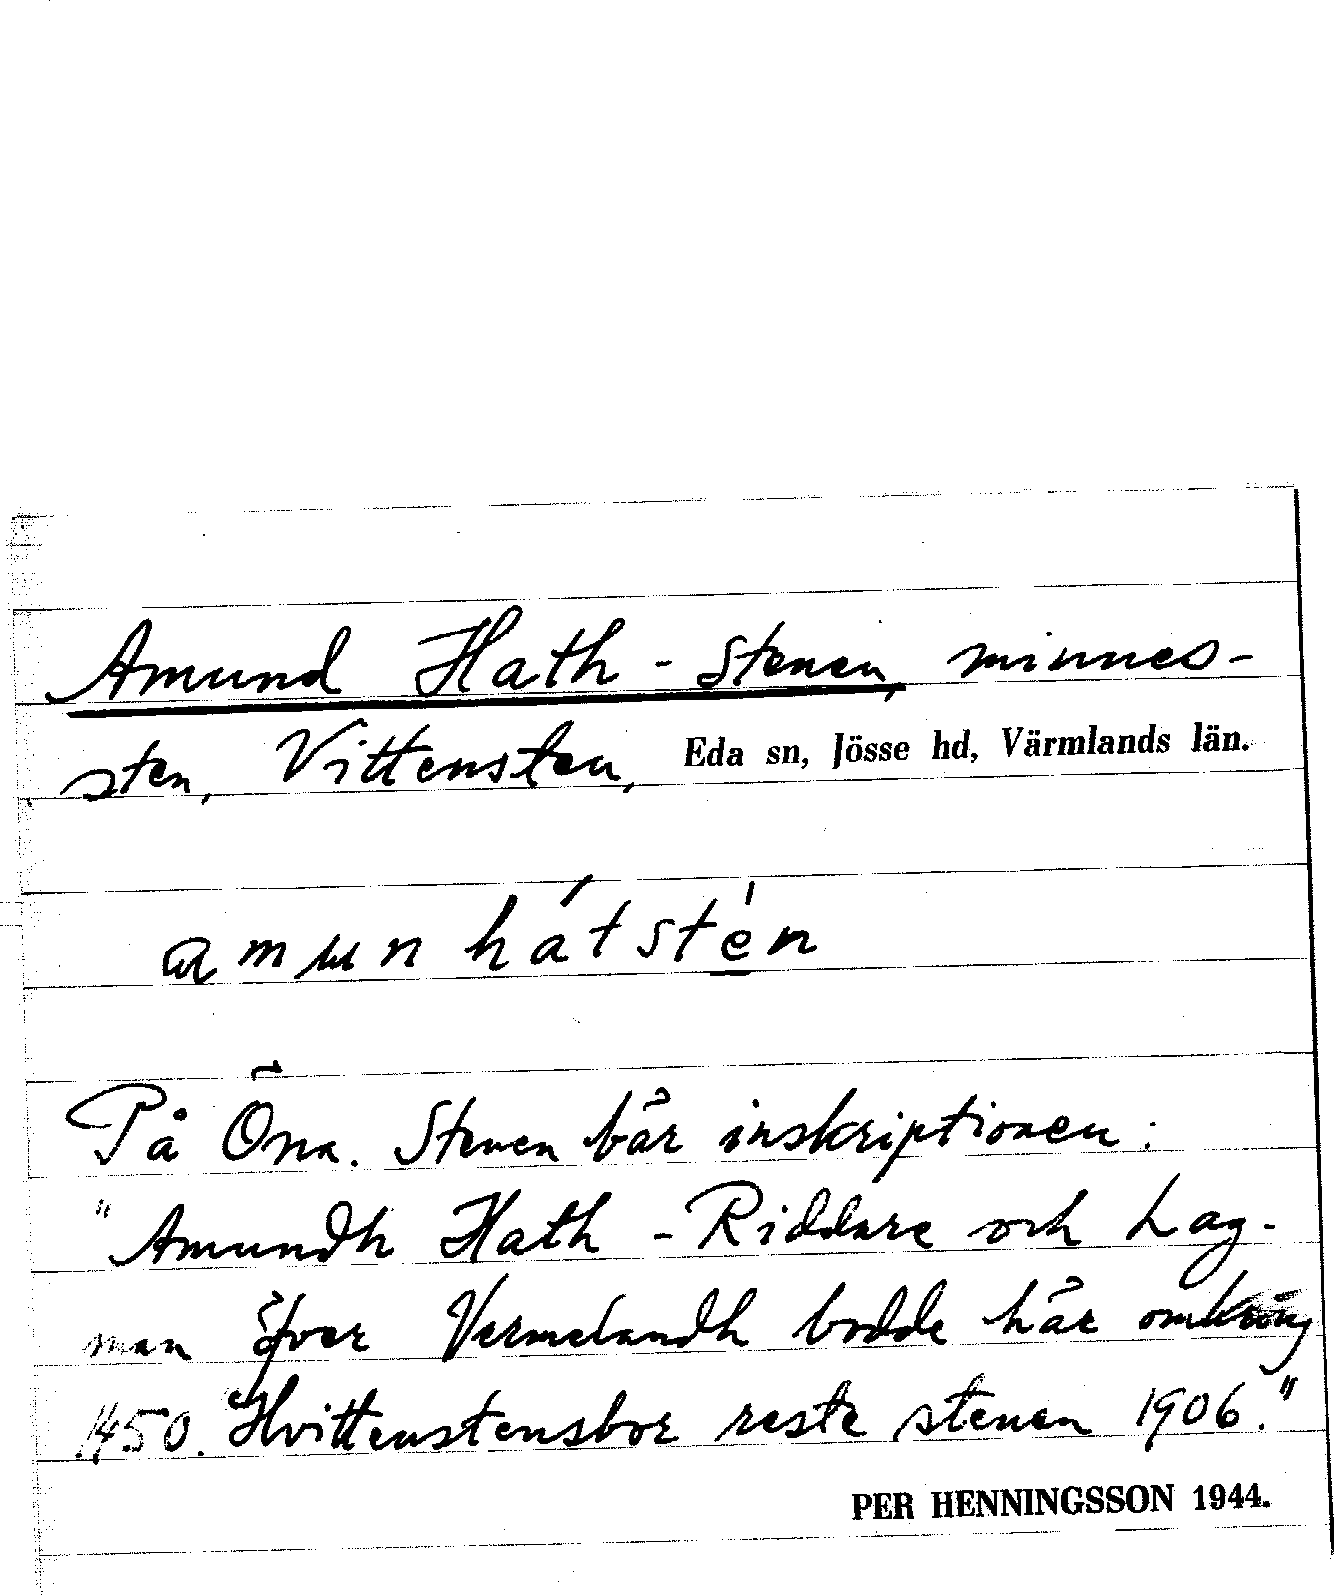 Amund Hath - Stenen, minnes-
sten, Vittensten, Eda sn, Jösse hd, Värmlands län.
amun hátstén
På Öna. Stenen bär inskriptionen:
"Amundh Hath - Riddare och Lag-
man öfver Vermelandh bodde här omkring
1450. Hvittenstensbor reste stenen 1906."
PER HENNINGSSON 1944.